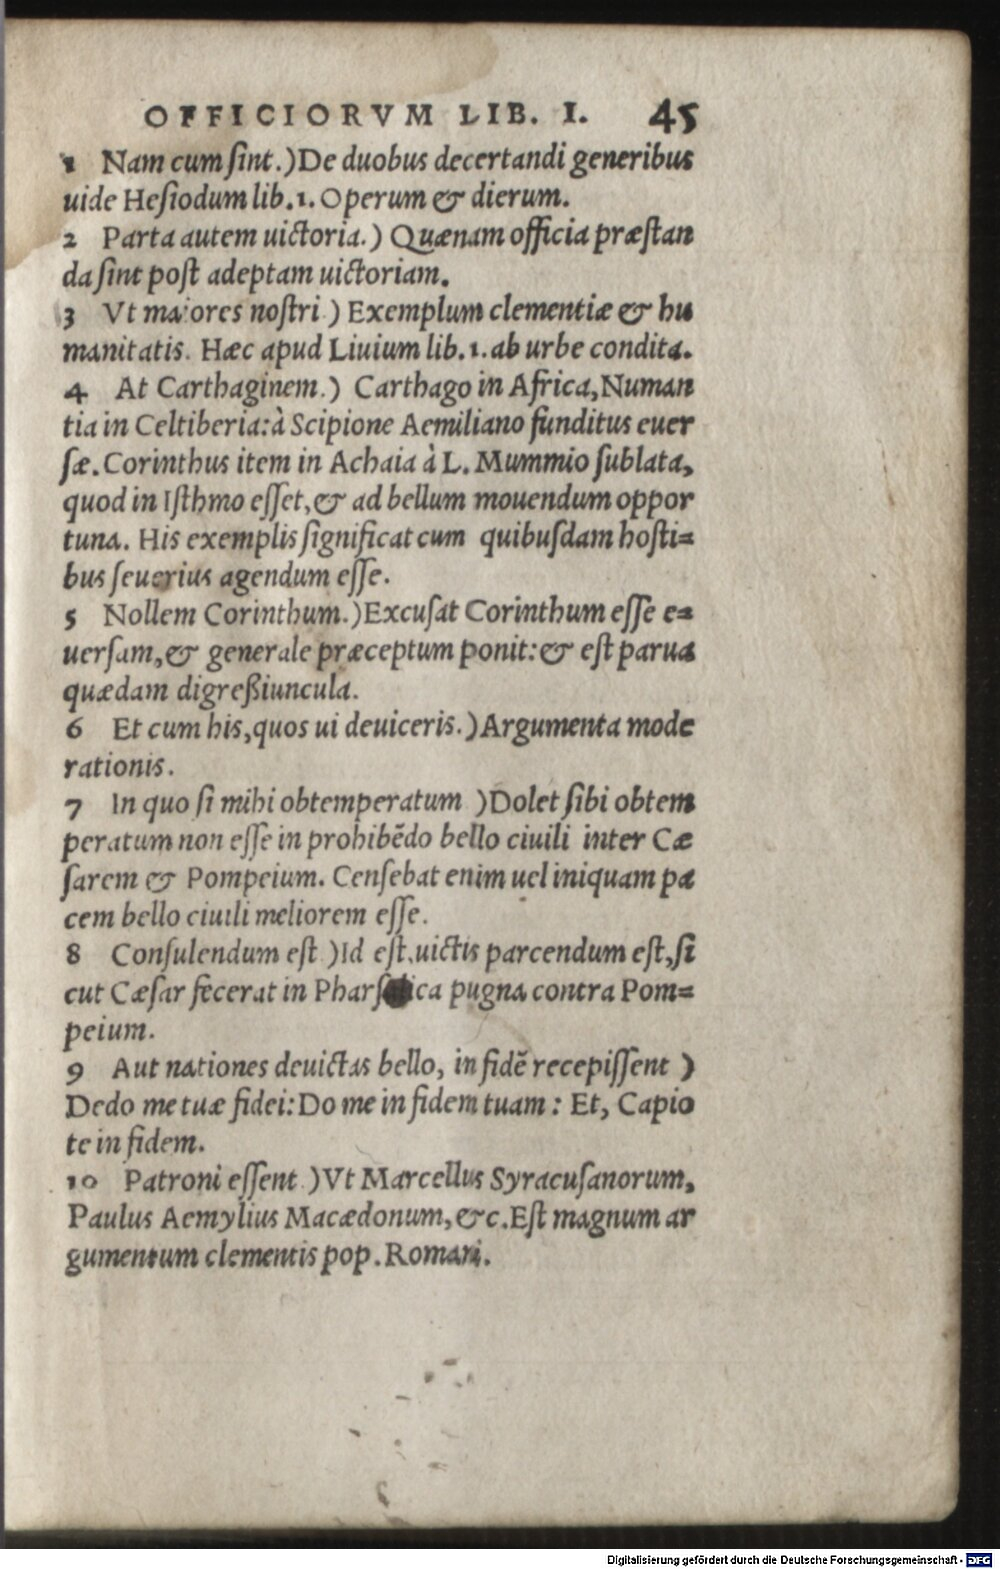 OFFICIORVM LIB. I. 45
1 Nam cum sint.) De duobus decertandi generibus
uide Hesiodum lib.1. Operum & dierum.
2 Parta autem uictoria.) Quænam officia præstan
da sint post adeptam uictoriam.
3 Vt maiores nostri.) Exemplum clementiæ & hu
manitatis. Hæc apud Liuium lib.1. ab urbe condita.
4 At Carthaginem.) Carthago in Africa, Numan
tia in Celtiberia: à Scipione Aemiliano funditus euer
sæ. Corinthus item in Achaia à L. Mummio sublata,
quod in Isthmo esset, & ad bellum mouendum oppor
tuna. His exemplis significat cum quibusdam hosti=
bus seuerius agendum esse.
5 Nollem Corinthum.) Excusat Corinthum esse e=
uersam, & generale præceptum ponit: & est parua
quædam digreßiuncula.
6 Et cum his, quos ui deuiceris.) Argumenta mode
rationis.
7 In quo si mihi obtemperatum ) Dolet sibi obtem
peratum non esse in prohibẽdo bello ciuili inter Cæ
sarem & Pompeium. Censebat enim uel iniquam pa
cem bello ciuili meliorem esse.
8 Consulendum est ) Id est, uictis parcendum est, si
cut Cæsar fecerat in Pharsalica pugna contra Pom=
peium.
9 Aut nationes deuictas bello, in fidẽ recepissent )
Dedo me tuæ fidei: Do me in fidem tuam: Et, Capio
te in fidem.
10 Patroni essent.) Vt Marcellus Syracusanorum,
Paulus Aemylius Macædonum, &c. Est magnum ar
gumentum clementis pop. Romani.
Digitalisierung gefördert durch die Deutsche Forschungsgemeinschaft - DFG